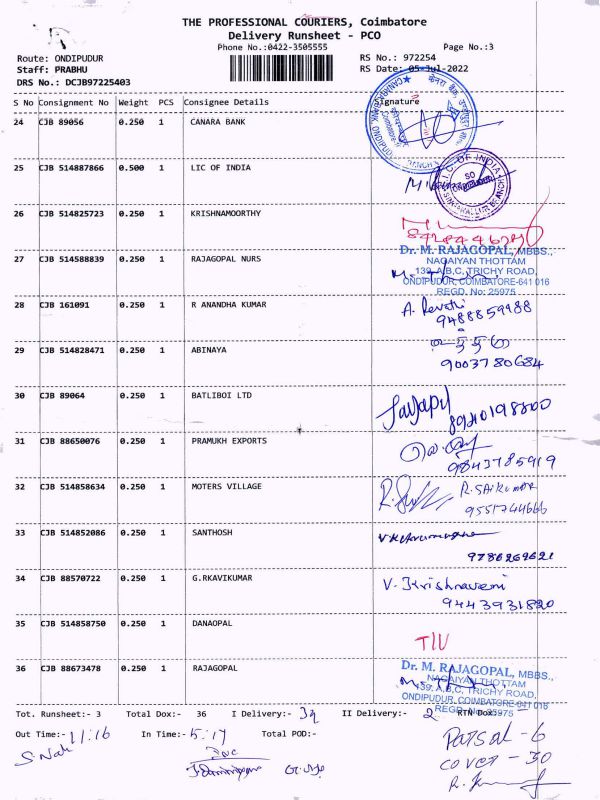 THE PROFESSIONAL COURIERS, Coimbatore
Delivery Runsheet - PCO
Phone No.:0422-3505555
Page No.:3
Route: ONDIPUDUR
RS No.: 972254
Staff: PRABHU
RS Date: 05-Jul-2022
DRS No.: DCJB97225403
S No Consignment No Weight PCS Consignee Details Signature
24 CJB 89056 0.250 1 CANARA BANK
25 CJB 514887866 0.500 1 LIC OF INDIA
26 CJB 514825723 0.250 1 KRISHNAMOORTHY
27 CJB 514588839 0.250 1 RAJAGOPAL NURS
Dr. M. RAJAGOPAL, MBBS.,
NAGAIYAN THOTTAM
139, A,B,C, TRICHY ROAD,
ONDIPUDUR, COIMBATORE-641 016
REGD. No: 25975
28 CJB 161091 0.250 1 R ANANDHA KUMAR
A. Revathi
9488859988
29 CJB 514828471 0.250 1 ABINAYA
9003780684
30 CJB 89064 0.250 1 BATLIBOI LTD
31 CJB 88650076 0.250 1 PRAMUKH EXPORTS
9843785919
32 CJB 514858634 0.250 1 MOTERS VILLAGE
R. SAIKUMAR
9551744666
33 CJB 514852086 0.250 1 SANTHOSH
9786269621
34 CJB 88570722 0.250 1 G.RKAVIKUMAR
V. Krishnaveni
9443931820
35 CJB 514858750 0.250 1 DANAOPAL
36 CJB 88673478 0.250 1 RAJAGOPAL
Dr. M. RAJAGOPAL, MBBS.,
NAGAIYAN THOTTAM
139, A,B,C, TRICHY ROAD,
ONDIPUDUR, COIMBATORE-641 016
REGD. No: 25975
Tot. Runsheet:- 3 Total Dox:- 36 I Delivery:- II Delivery:- 2 RTN Dox:-
Out Time:- 11:16 In Time:- 5:17 Total POD:-
Parsal - 6
cover - 30